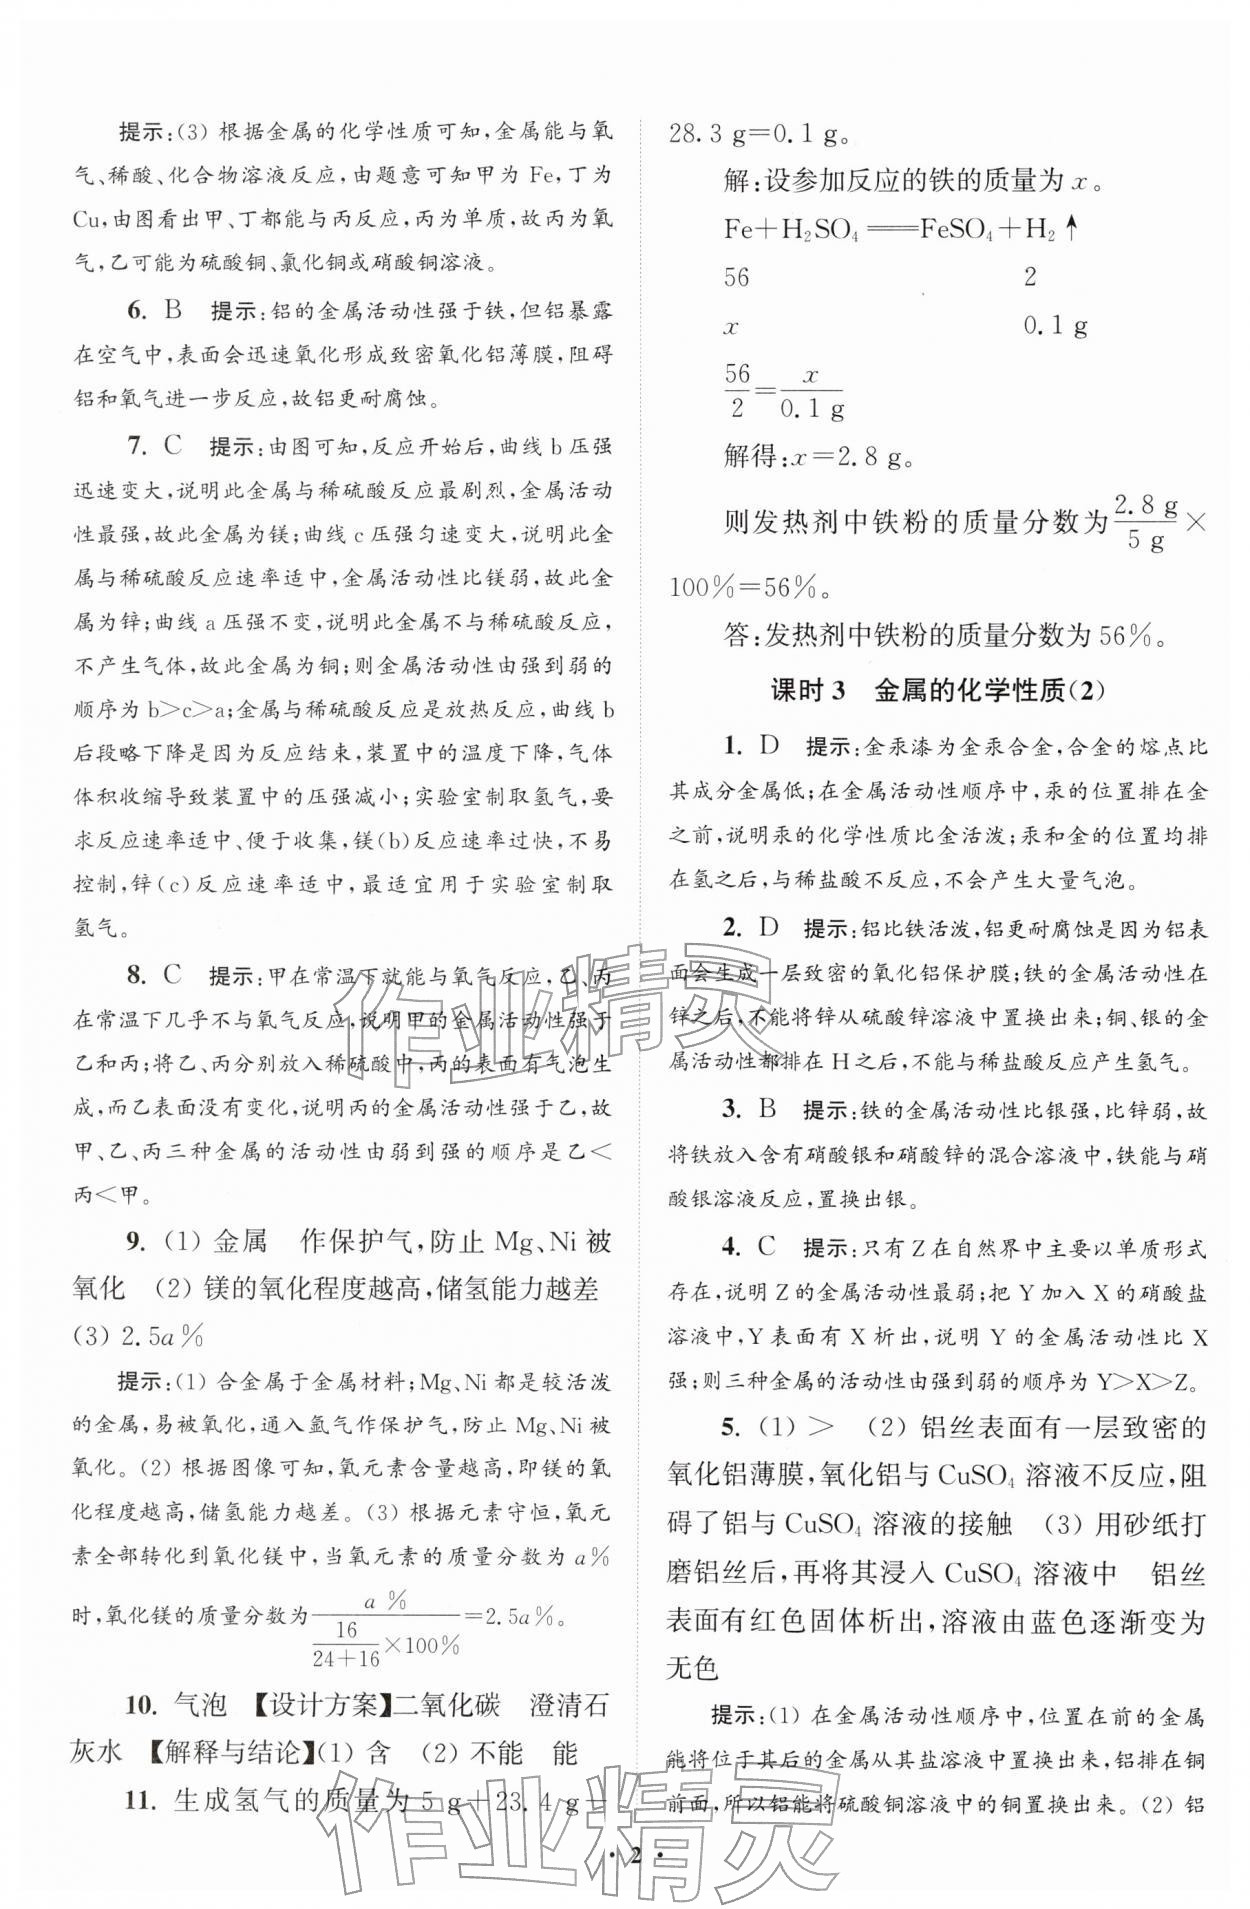 提示:(3) 根据金属的化学性质可知,金属能与氧
气、稀酸、化合物溶液反应,由题意可知甲为 Fe,丁为
Cu,由图看出甲、丁都能与丙反应,丙为单质,故丙为氧
气,乙可能为硫酸铜、氯化铜或硝酸铜溶液。
6. B 提示:铝的金属活动性强于铁,但铝暴露
在空气中,表面会迅速氧化形成致密氧化铝薄膜,阻碍
铝和氧气进一步反应,故铝更耐腐蚀。
7. C 提示:由图可知,反应开始后,曲线 b 压强
迅速变大,说明此金属与稀硫酸反应最剧烈,金属活动
性最强,故此金属为镁;曲线 c 压强匀速变大,说明此金
属与稀硫酸反应速率适中,金属活动性比镁弱,故此金
属为锌;曲线 a 压强不变,说明此金属不与稀硫酸反应,
不产生气体,故此金属为铜;则金属活动性由强到弱的
顺序为 b>c>a;金属与稀硫酸反应是放热反应,曲线 b
后段略下降是因为反应结束,装置中的温度下降,气体
体积收缩导致装置中的压强减小;实验室制取氢气,要
求反应速率适中、便于收集,镁(b)反应速率过快,不易
控制,锌(c)反应速率适中,最适宜用于实验室制取
氢气。
8. C 提示:甲在常温下就能与氧气反应,乙、丙
在常温下几乎不与氧气反应,说明甲的金属活动性强于
乙和丙;将乙、丙分别放入稀硫酸中,丙的表面有气泡生
成,而乙表面没有变化,说明丙的金属活动性强于乙,故
甲、乙、丙三种金属的活动性由弱到强的顺序是乙<
丙<甲。
9. (1) 金属 作保护气,防止 Mg、Ni 被
氧化 (2) 镁的氧化程度越高,储氢能力越差
(3) 2.5a%
提示:(1) 合金属于金属材料;Mg、Ni 都是较活泼
的金属,易被氧化,通入氩气作保护气,防止 Mg、Ni 被
氧化。(2) 根据图像可知,氧元素含量越高,即镁的氧
化程度越高,储氢能力越差。(3) 根据元素守恒,氧元
素全部转化到氧化镁中,当氧元素的质量分数为 a%
时,氧化镁的质量分数为 a % / (16/(24+16)×100%) =2.5a%。
10. 气泡 【设计方案】二氧化碳 澄清石
灰水 【解释与结论】(1) 含 (2) 不能 能
11. 生成氢气的质量为 5 g+23.4 g−
28.3 g=0.1 g。
解:设参加反应的铁的质量为 x。
Fe+H₂SO₄══FeSO₄+H₂↑
56 2
x 0.1 g
56/2=x/0.1 g
解得:x=2.8 g。
则发热剂中铁粉的质量分数为2.8 g/5 g×
100%=56%。
答:发热剂中铁粉的质量分数为 56%。
课时 3 金属的化学性质(2)
1. D 提示:金汞漆为金汞合金,合金的熔点比
其成分金属低;在金属活动性顺序中,汞的位置排在金
之前,说明汞的化学性质比金活泼;汞和金的位置均排
在氢之后,与稀盐酸不反应,不会产生大量气泡。
2. D 提示:铝比铁活泼,铝更耐腐蚀是因为铝表
面会生成一层致密的氧化铝保护膜;铁的金属活动性在
锌之后,不能将锌从硫酸锌溶液中置换出来;铜、银的金
属活动性都排在 H 之后,不能与稀盐酸反应产生氢气。
3. B 提示:铁的金属活动性比银强,比锌弱,故
将铁放入含有硝酸银和硝酸锌的混合溶液中,铁能与硝
酸银溶液反应,置换出银。
4. C 提示:只有 Z 在自然界中主要以单质形式
存在,说明 Z 的金属活动性最弱;把 Y 加入 X 的硝酸盐
溶液中,Y 表面有 X 析出,说明 Y 的金属活动性比 X
强;则三种金属的活动性由强到弱的顺序为 Y>X>Z。
5. (1) > (2) 铝丝表面有一层致密的
氧化铝薄膜,氧化铝与 CuSO₄ 溶液不反应,阻
碍了铝与 CuSO₄ 溶液的接触 (3) 用砂纸打
磨铝丝后,再将其浸入 CuSO₄ 溶液中 铝丝
表面有红色固体析出,溶液由蓝色逐渐变为
无色
提示:(1) 在金属活动性顺序中,位置在前的金属
能将位于其后的金属从其盐溶液中置换出来,铝排在铜
前面,所以铝能将硫酸铜溶液中的铜置换出来。(2) 铝
· 2 ·
作业精灵
作业精灵